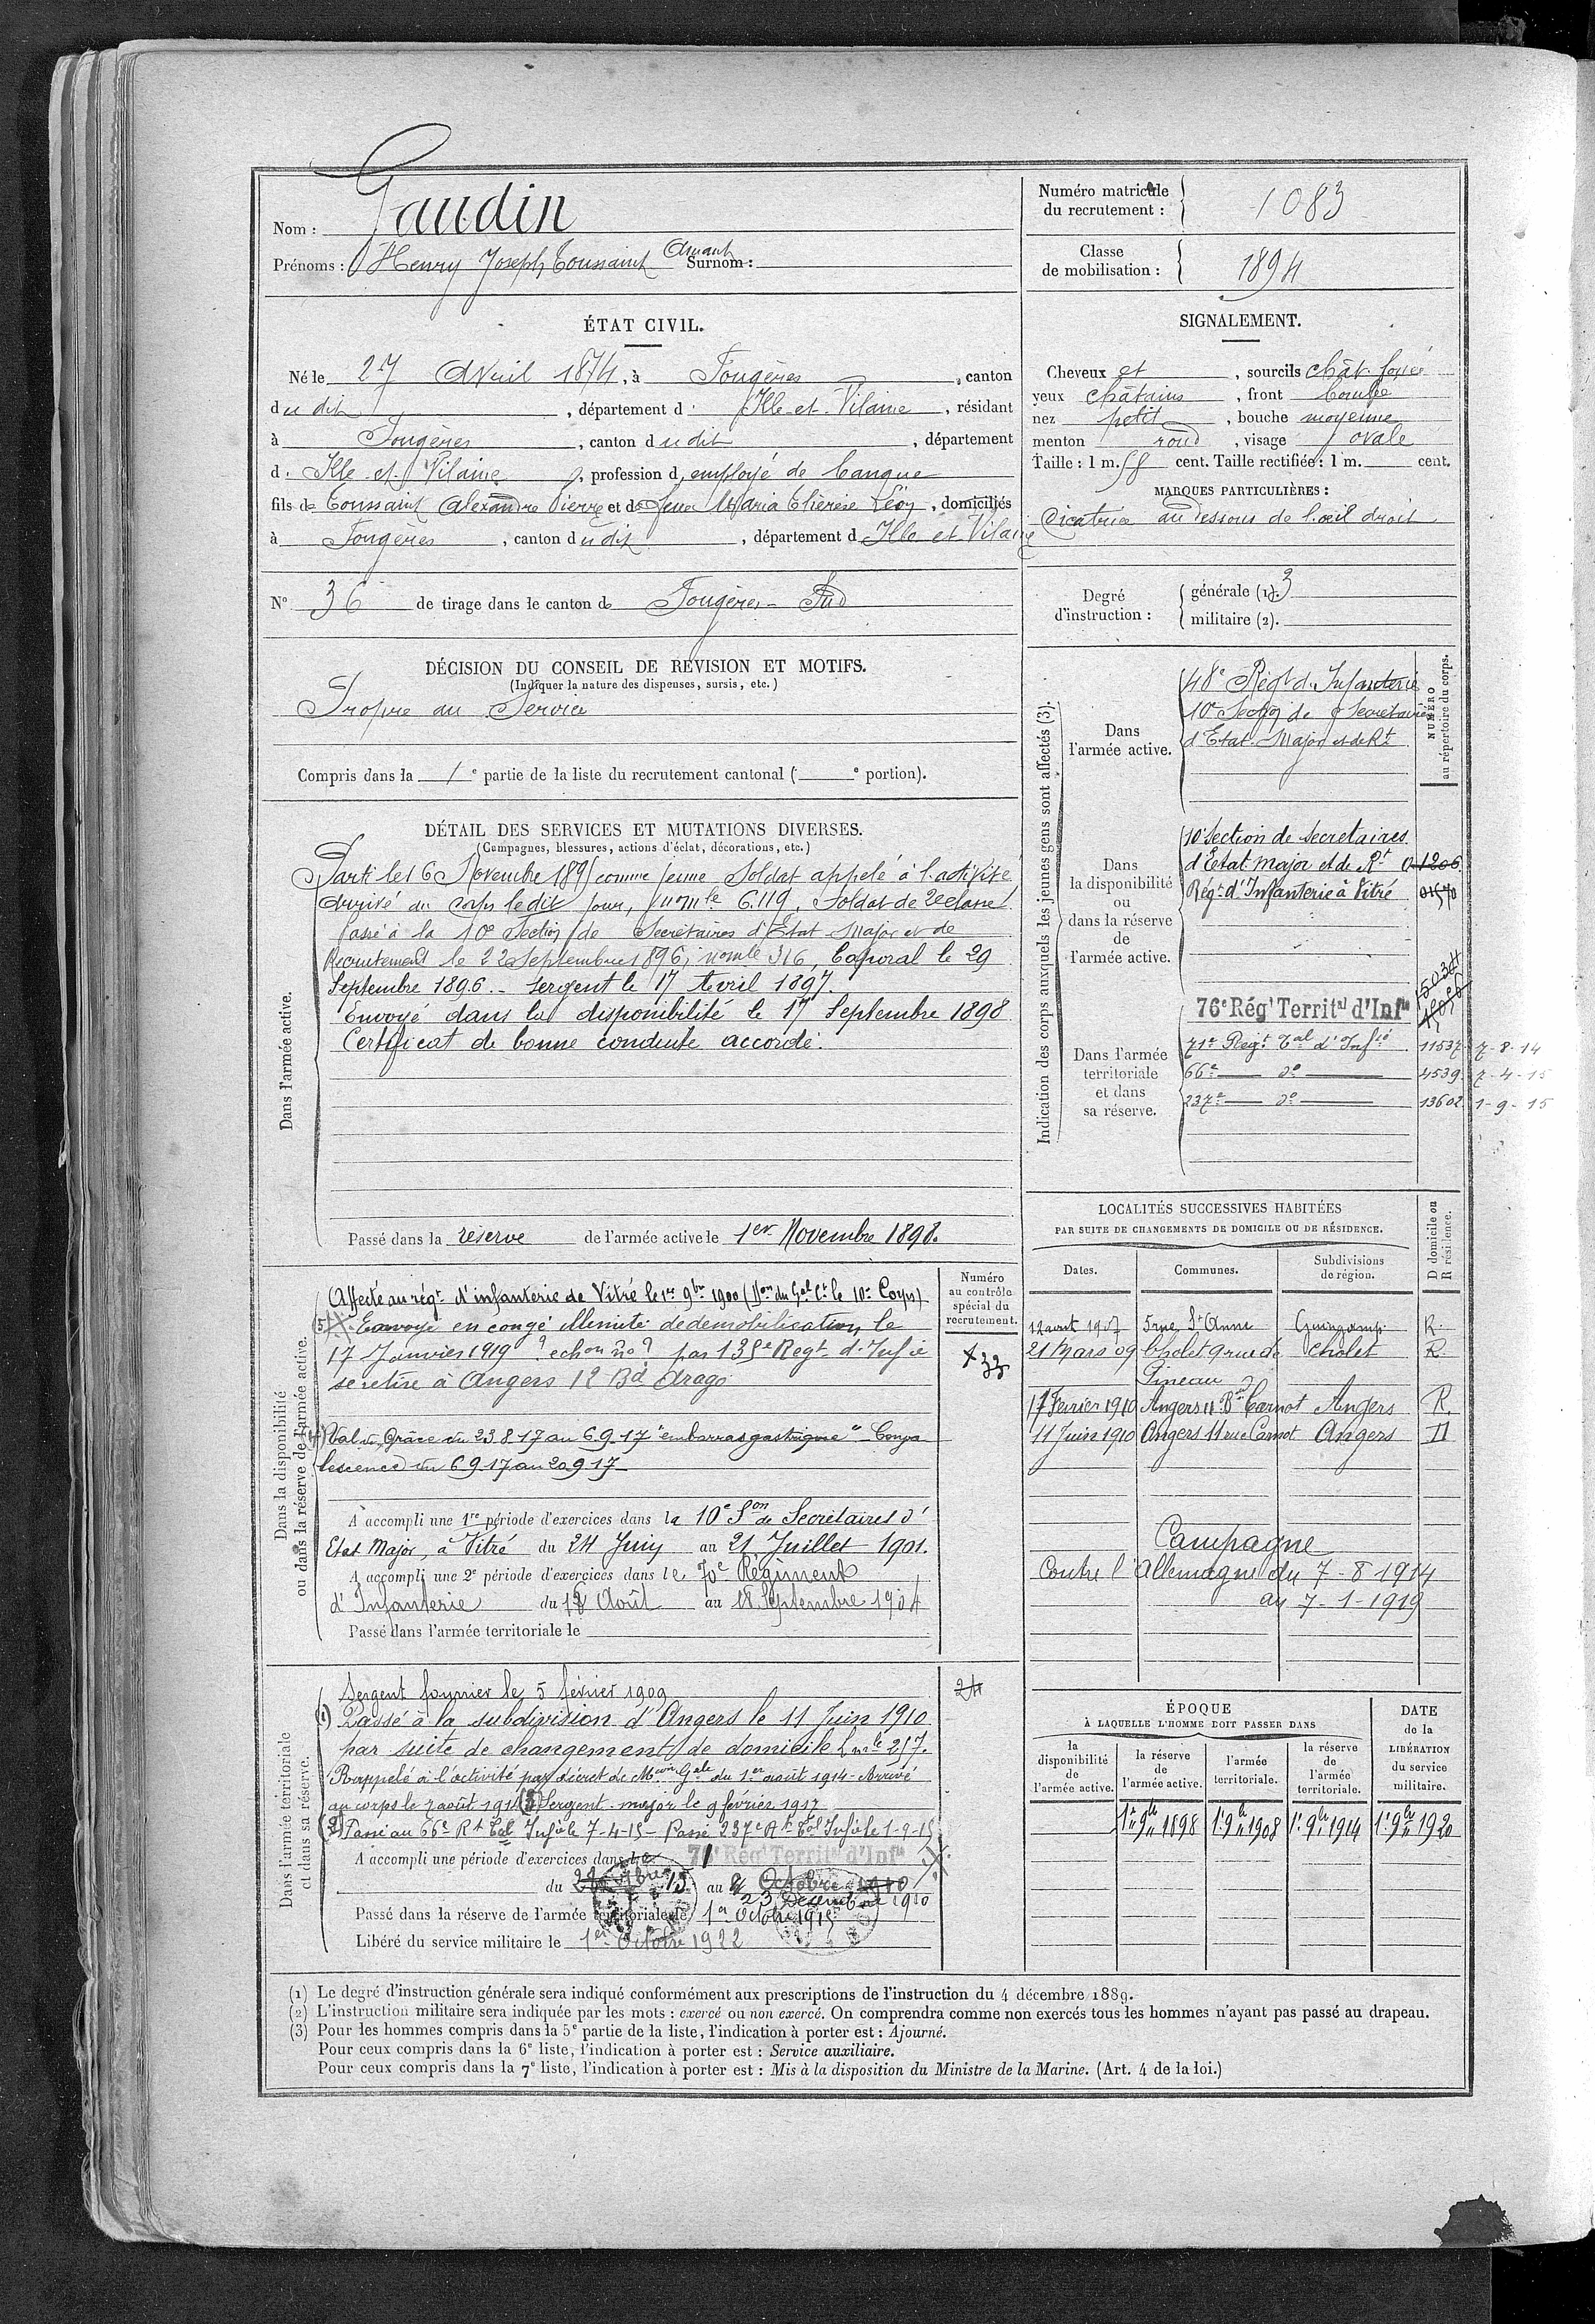 Nom : Gaudin
Prénoms : Henry Joseph Toussaint Amant Surnom :
Numéro matricule
du recrutement : 1083
Classe
de mobilisation : 1894
ÉTAT CIVIL.
Né le 27 Avril 1874, à Fougères, canton
du dit, département d' Ille-et-Vilaine, résidant
à Fougères, canton du dit, département
d' Ille-et-Vilaine, profession d' employé de banque
fils de Toussaint Alexandre Pierre et de feue Maria Thérèse Léoy, domiciliés
à Fougères, canton du dit, département d' Ille et Vilaine
SIGNALEMENT.
Cheveux et, sourcils chât foncé
yeux châtains, front bombé
nez petit, bouche moyenne
menton rond, visage ovale
Taille : 1 m. 58 cent. Taille rectifiée : 1 m. cent.
MARQUES PARTICULIÈRES :
Cicatrice au dessous de l'œil droit
N° 36 de tirage dans le canton de Fougères-Sud
Degré
d'instruction :
générale (1). 3
militaire (2).
DÉCISION DU CONSEIL DE REVISION ET MOTIFS.
(Indiquer la nature des dispenses, sursis, etc.)
Propre au Service
Compris dans la 1e partie de la liste du recrutement cantonal ( e portion).
DÉTAIL DES SERVICES ET MUTATIONS DIVERSES.
(Campagnes, blessures, actions d'éclat, décorations, etc.)
Dans l'armée active.
Parti le 16 Novembre 1895 comme jeune Soldat appelé à l'activité
Arrivé au corps le dit jour, nomle 6.119, Soldat de 2e classe
Passé à la 10e Section de Secrétaires d'Etat Major et de
Recrutement le 22 Septembre 1896, nomle 316, Caporal le 29
Septembre 1896. - Sergent le 17 Avril 1897.
Envoyé dans la disponibilité le 17 Septembre 1898
Certificat de bonne conduite accordé.
Passé dans la réserve de l'armée active le 1er Novembre 1898.
Indication des corps auxquels les jeunes gens sont affectés (3).
NUMÉRO
au répertoire du corps.
Dans
l'armée active.
48e Régt d'Infanterie
10e Section de Secretaires
d'Etat-Major et de Rt
Dans
la disponibilité
ou
dans la réserve
de
l'armée active.
10e Section de Secretaires
d'Etat major et de Rt 01206
Régt d'Infanterie à Vitré 01570
Dans l'armée
territoriale
et dans
sa réserve.
76e Régt Territal d'Infie
71e Régt Tal d'Infie 11537 7-8-14
66e do 4539 7-4-15
237e do 13602 1-9-15
LOCALITÉS SUCCESSIVES HABITÉES
PAR SUITE DE CHANGEMENTS DE DOMICILE OU DE RÉSIDENCE.
Dates. Communes. Subdivisions
de région. D domicile ou
R résidence.
12 avril 1907 5 rue St Anne Guingamp R.
21 Mars 09 Cholet 9 rue de Cholet R
Pineau
17 Février 1910 Angers 11 Bd Carnot Angers R.
11 Juin 1910 Angers 11 rue Carnot Angers D
Campagne
Contre l'Allemagne du 7-8-1914
au 7-1-1919
Dans la disponibilité
ou dans la réserve de l'armée active.
Numéro
au contrôle
spécial du
recrutement.
33
Affecté au régt d'infanterie de Vitré le 1er 9bre 1900 (Don du Gal Ct le 10e Corps)
(5) Envoyé en congé illimité de démobilisation, le
17 Janvier 1919 ? echon no ? par 135e Regt d'Infie
se retire à Angers 12 Bd Arago
(4) Val de Grâce du 23 8 17 au 6 9 17 "embarras gastrique" Conva
lescence du 6 9 17 au 20 9 17
A accompli une 1re période d'exercices dans la 10e Son de Secrétaires d'
Etat Major, à Vitré du 24 Juin au 21 Juillet 1901.
A accompli une 2e période d'exercices dans le 70e Régiment
d'Infanterie du 18 Août au 18 Septembre 1904
Passé dans l'armée territoriale le
Dans l'armée territoriale
et dans sa réserve.
24
Sergent fourrier le 5 février 1909
(1) Passé à la subdivision d'Angers le 11 Juin 1910
par suite de changement de domicile nle 257.
Rappelé à l'activité par décret de Mion Gale du 1er août 1914 - Arrivé
au corps le 7 août 1914 (3) Sergent-major le 9 février 1917
(2) Passé au 66e Rt Tal Infie le 7-4-15 - Passé 237e Rt Tal Infie le 1-9-15
A accompli une période d'exercices dans le 71e Régt Territal d'Infie
du 13 au Octobre 1910
23 Décembre 1910
Passé dans la réserve de l'armée territoriale le 1er Octobre 1915
Libéré du service militaire le 1er Octobre 1922
ÉPOQUE
À LAQUELLE L'HOMME DOIT PASSER DANS
DATE
de la
LIBÉRATION
du service
militaire.
la
disponibilité
de
l'armée active.
la réserve
de
l'armée active.
l'armée
territoriale.
la réserve
de
l'armée
territoriale.
1er 9bre 1898 1er 9bre 1908 1er 9bre 1914 1er 9bre 1920
(1) Le degré d'instruction générale sera indiqué conformément aux prescriptions de l'instruction du 4 décembre 1889.
(2) L'instruction militaire sera indiquée par les mots : exercé ou non exercé. On comprendra comme non exercés tous les hommes n'ayant pas passé au drapeau.
(3) Pour les hommes compris dans la 5e partie de la liste, l'indication à porter est : Ajourné.
Pour ceux compris dans la 6e liste, l'indication à porter est : Service auxiliaire.
Pour ceux compris dans la 7e liste, l'indication à porter est : Mis à la disposition du Ministre de la Marine. (Art. 4 de la loi.)